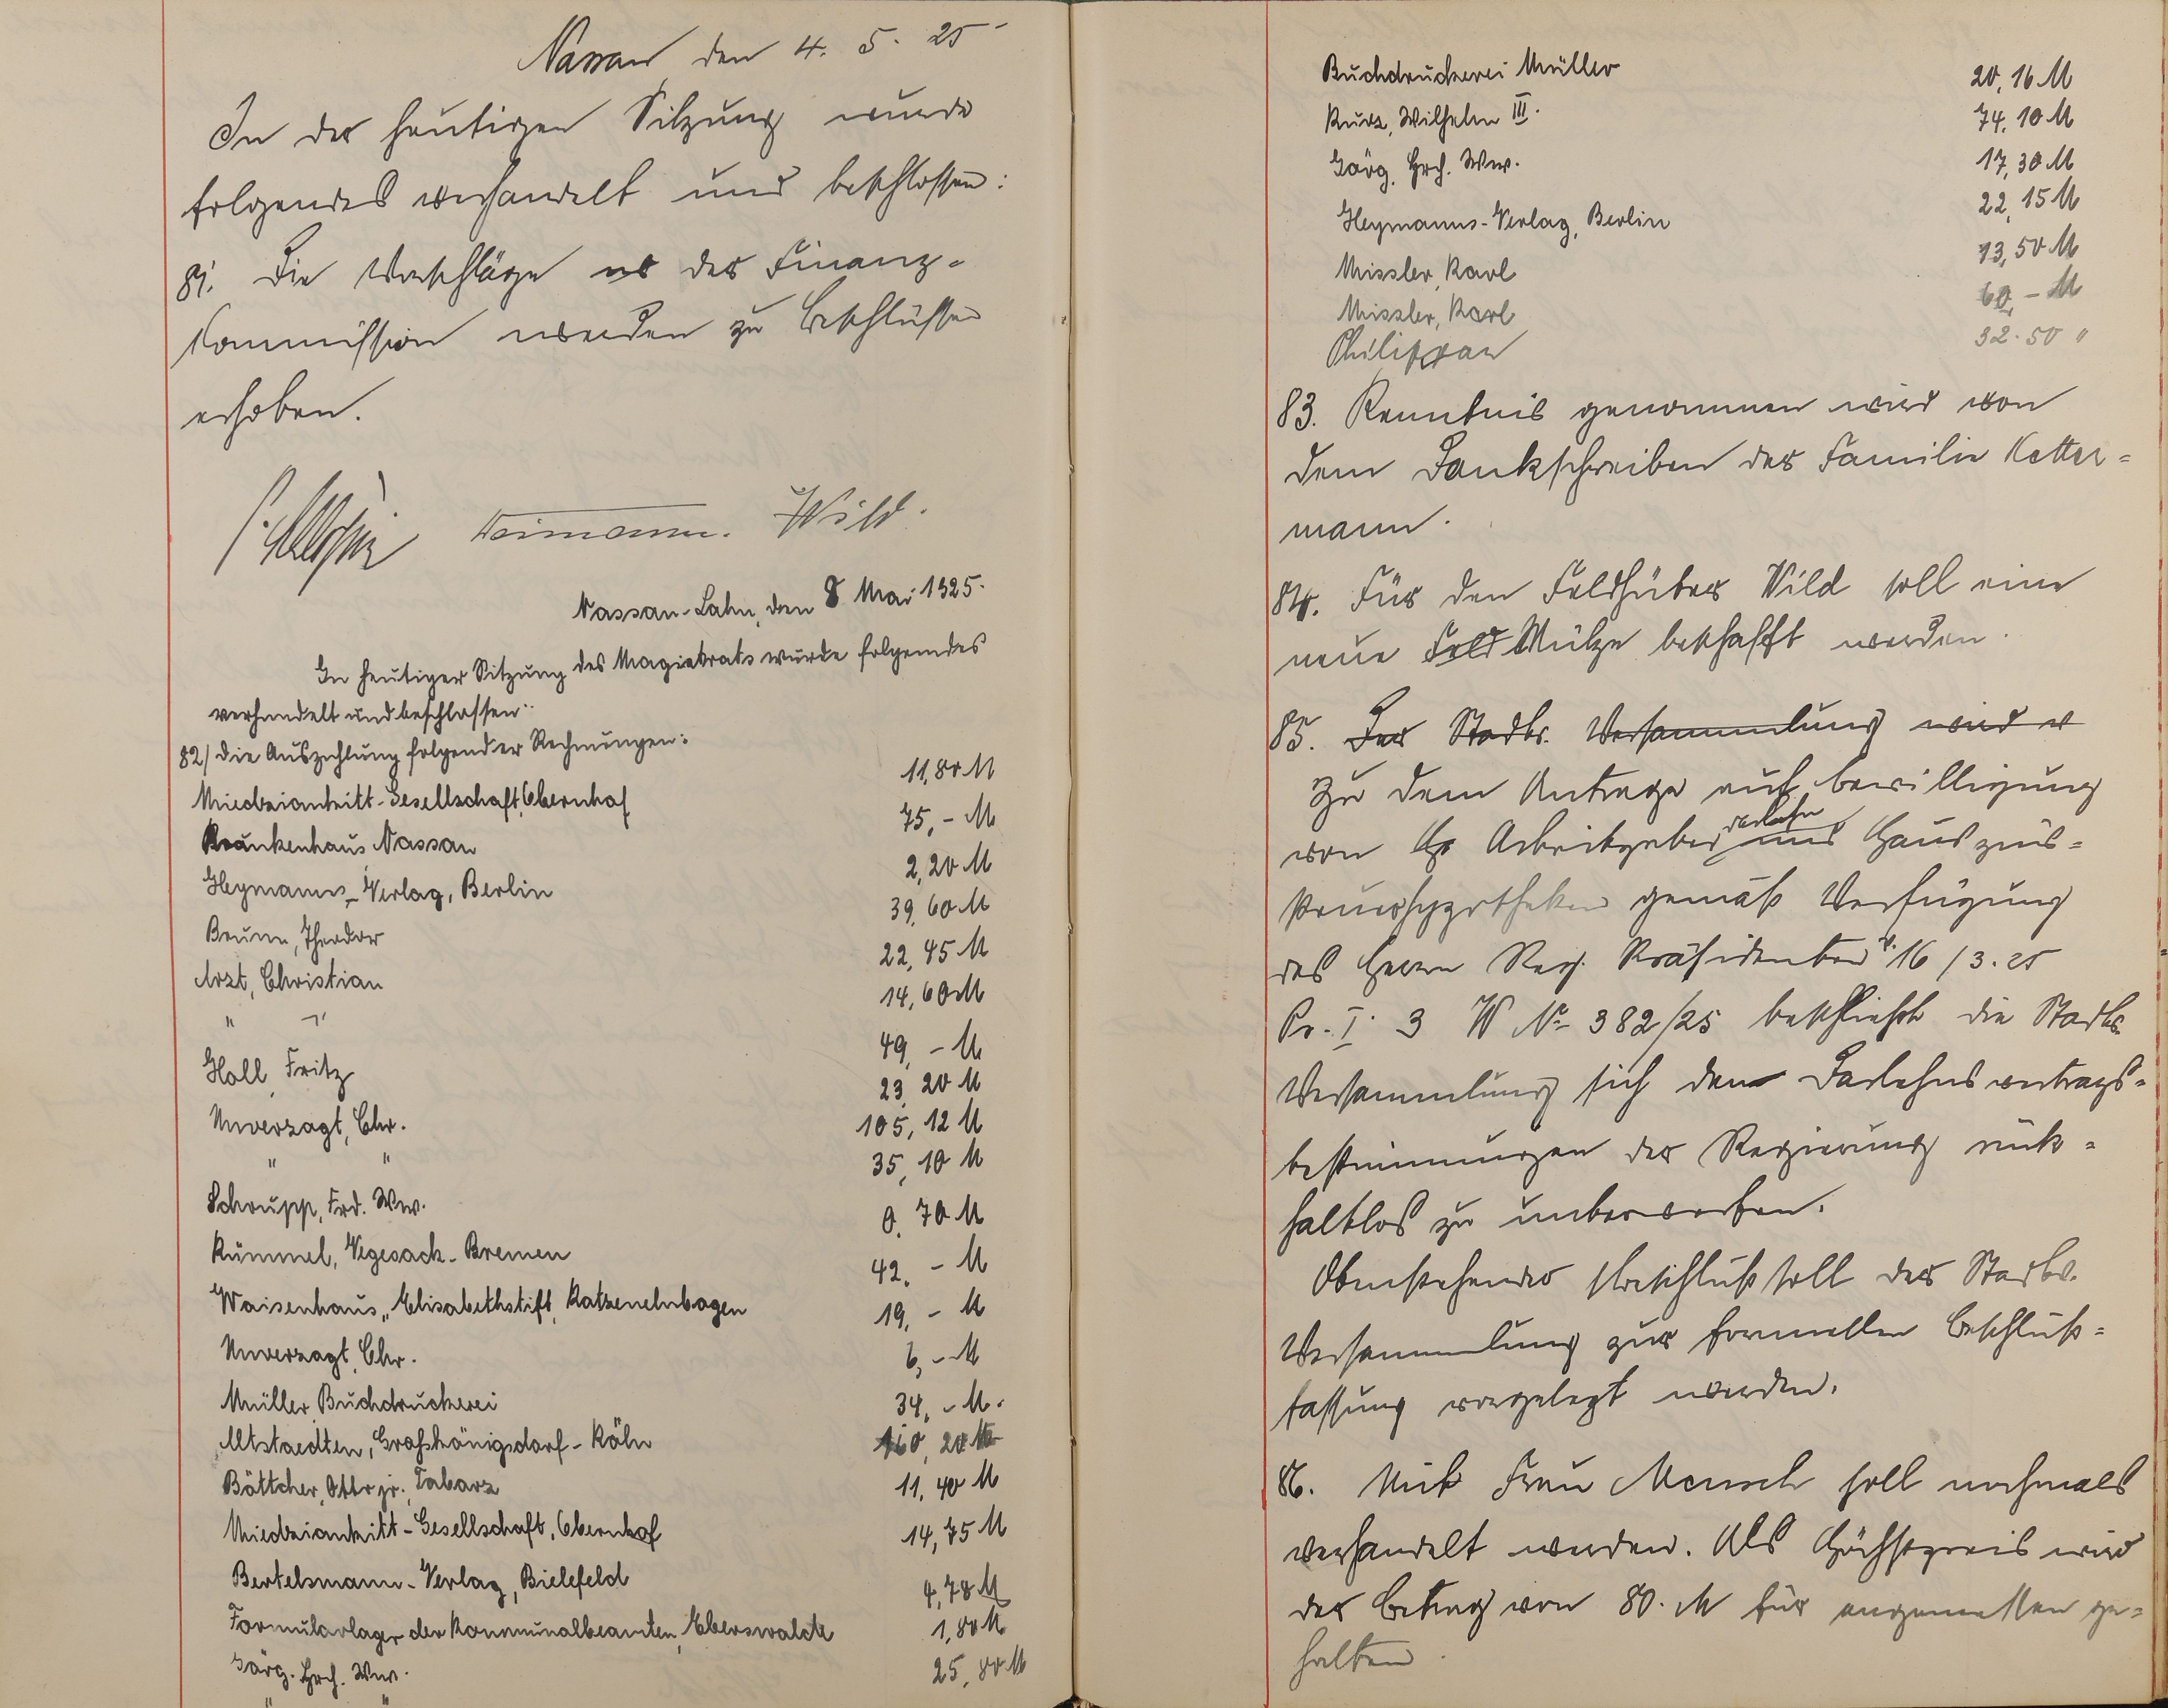 Nassau den 4. 5. 25
In der heutigen Sitzung wurde
folgendes verhandelt und beschlossen:
81. Die Vorschläge der Finanz-
Kommission werden zu Beschlüssen
erhoben.
Wild.
Nassau-Lahn, den 8 Mai 1925.
In heutiger Sitzung des Magistrats wurde folgendes
verhandelt und beschlossen:
82/ die Auszahlung folgender Rechnungen:
Miedziankitt-Gesellschaft, Obernhof 11,80 M
Krankenhaus Nassau 75,- M
Heymanns-Verlag, Berlin 2,20 M
Bruun, Theodor 39,60 M
Arzt, Christian 22,45 M
" " 14,60 M
Holl, Fritz 49,- M
Unverzagt, Chr. 23,20 M
" " 105,12 M
Schrupp, Frd. Ww. 35,10 M
Kümmel, Vegesack-Bremen 0,70 M
Waisenhaus, Elisabethstift, Katzenelnbogen 42,- M
Unverzagt, Chr. 19,- M
Müller, Buchdruckerei 6,- M
Altstaedten, Grosskönigsdorf-Köln 34,- M.
Böttcher, Otto jr. Tabarz 160,20 M
Miedziankitt-Gesellschaft, Obernhof 11,40 M
Bertelsmann-Verlag, Bielefeld 14,75 M
Formularlager der Kommunalbeamten, Eberswalde 4,78 M
Görg. Hrch. Ww. 1,80 M
" " 25,80 M
Buchdruckerei Müller 20,16 M
Kurz, Wilhelm III. 74,10 M
Görg, Hrch. Ww. 17,30 M
Heymanns-Verlag, Berlin 22,15 M
Missler, Karl 13,50 M
Missler, Karl 60,- M
Philippar 32.50 "
83. Kenntnis genommen wird von
dem Dankschreiben der Familie Ketter-
mann.
84. Für den Feldhüter Wild soll eine
neue Feld Mütze beschafft werden.
85. Der Stadtv. Versammlung wird v
Zu dem Antrage auf Bewilligung
von Arbeitgeberdarlehn und Hauszins-
steuerhypotheken gemäß Verfügung
des Herrn Reg. Präsidenten v. 16/3.25
Pr. I. 3 W No 382/25 beschließt die Stadtv.
Versammlung sich den Darlehnsvertrags-
bestimmungen der Regierung rück-
haltlos zu unterwerfen.
Obenstehender Beschluß soll der Stadtv.
Versammlung zur formellen Beschluß-
fassung vorgelegt werden.
86. Mit Frau Mensch soll nochmals
verhandelt werden. Als Höchstpreis wird
der Betrag von 80. M für angemessen ge-
halten.